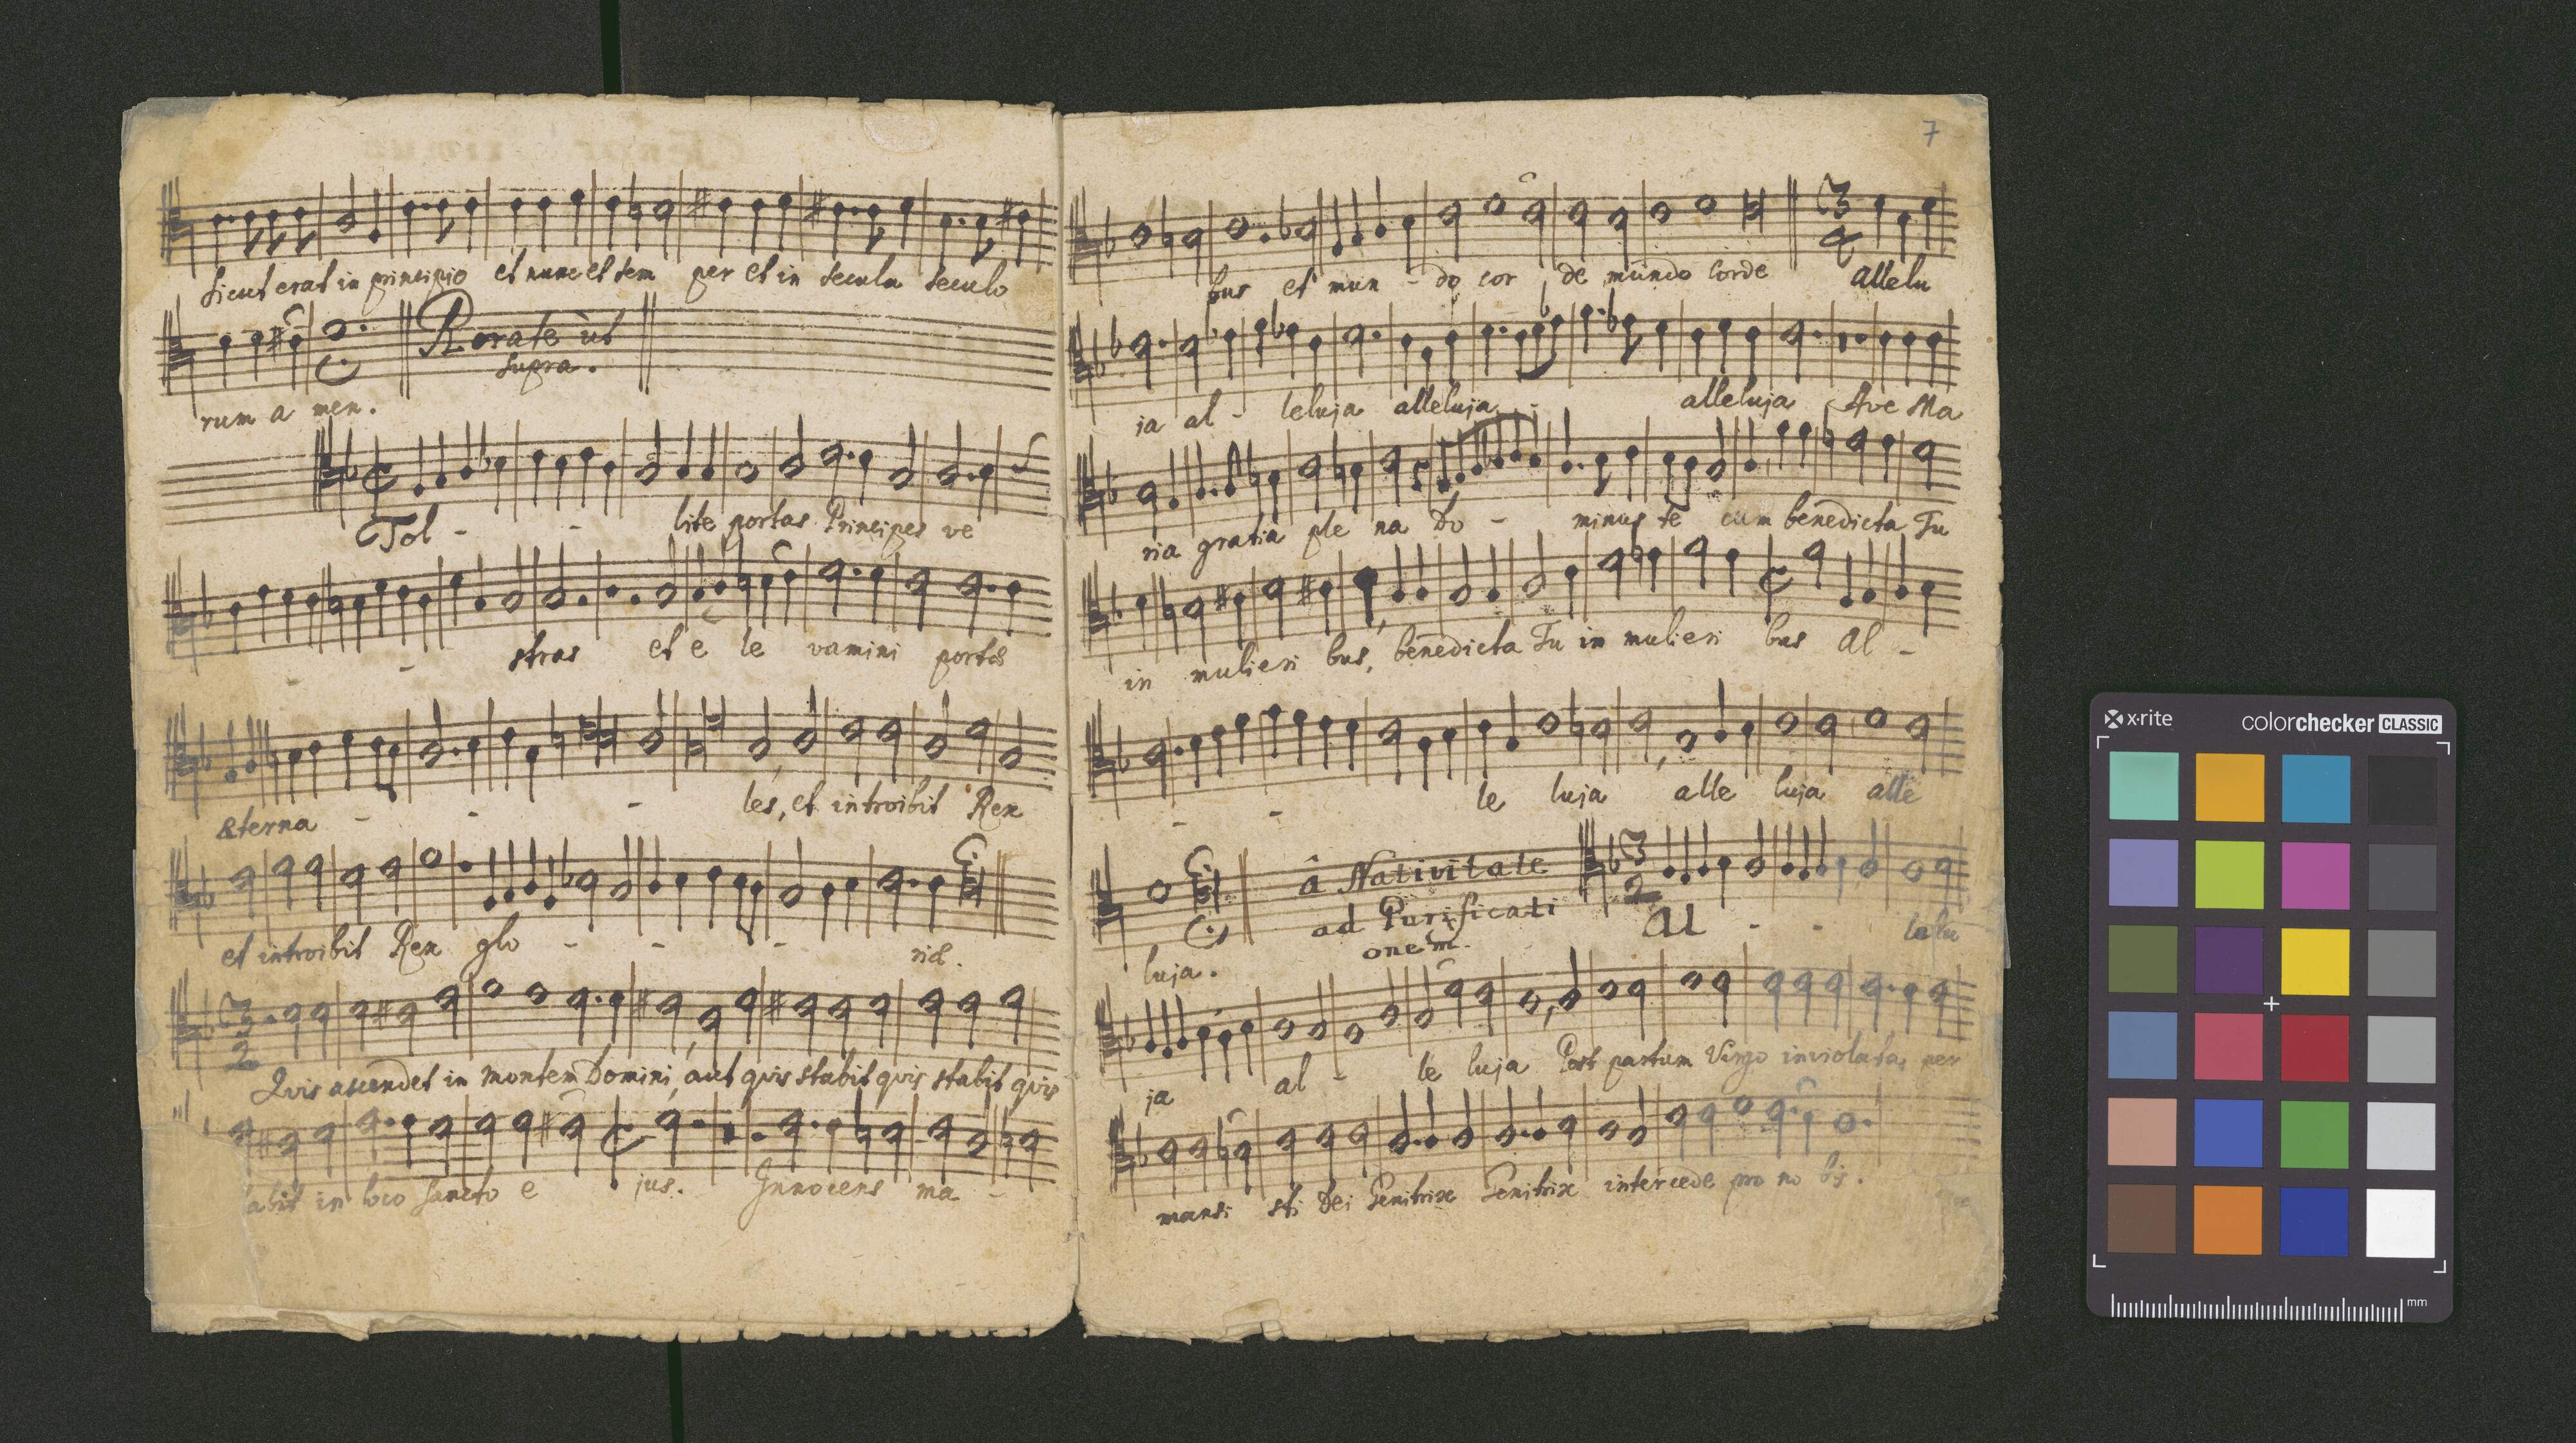 Sicut erat in principio et nunc et sem per et in secula seculo
Rorate ùt
supra.
rum a men.
Tol - - lite portas Principes ve
- - stras et e le vamini portæ
æterna - - - les, et introibit Rex
et introibit Rex glo - - - riæ.
3
2
Qvis ascendet in montem Domini, aut qvis stabit qvis stabit qvis
tabit in loco sancto e jus. Innocens ma -
7
bus et mun - do cor de mundo corde allelu
3
ia al - leluja alleluja - alleluja Ave Ma
ria gratia ple na Do - minus te cum benedicta Tu
in mulieri bus, benedicta Tu in mulieri bus Al -
- - le luja alle luja alle
â Nativitate
ad Purificati
onem.
3
2
luja. Al - - lelu
ja al - le luja Post partum Virgo inviolata, per
mansi sti Dei Genitrix Genitrix intercede pro no bis.
x-rite colorchecker CLASSIC
mm